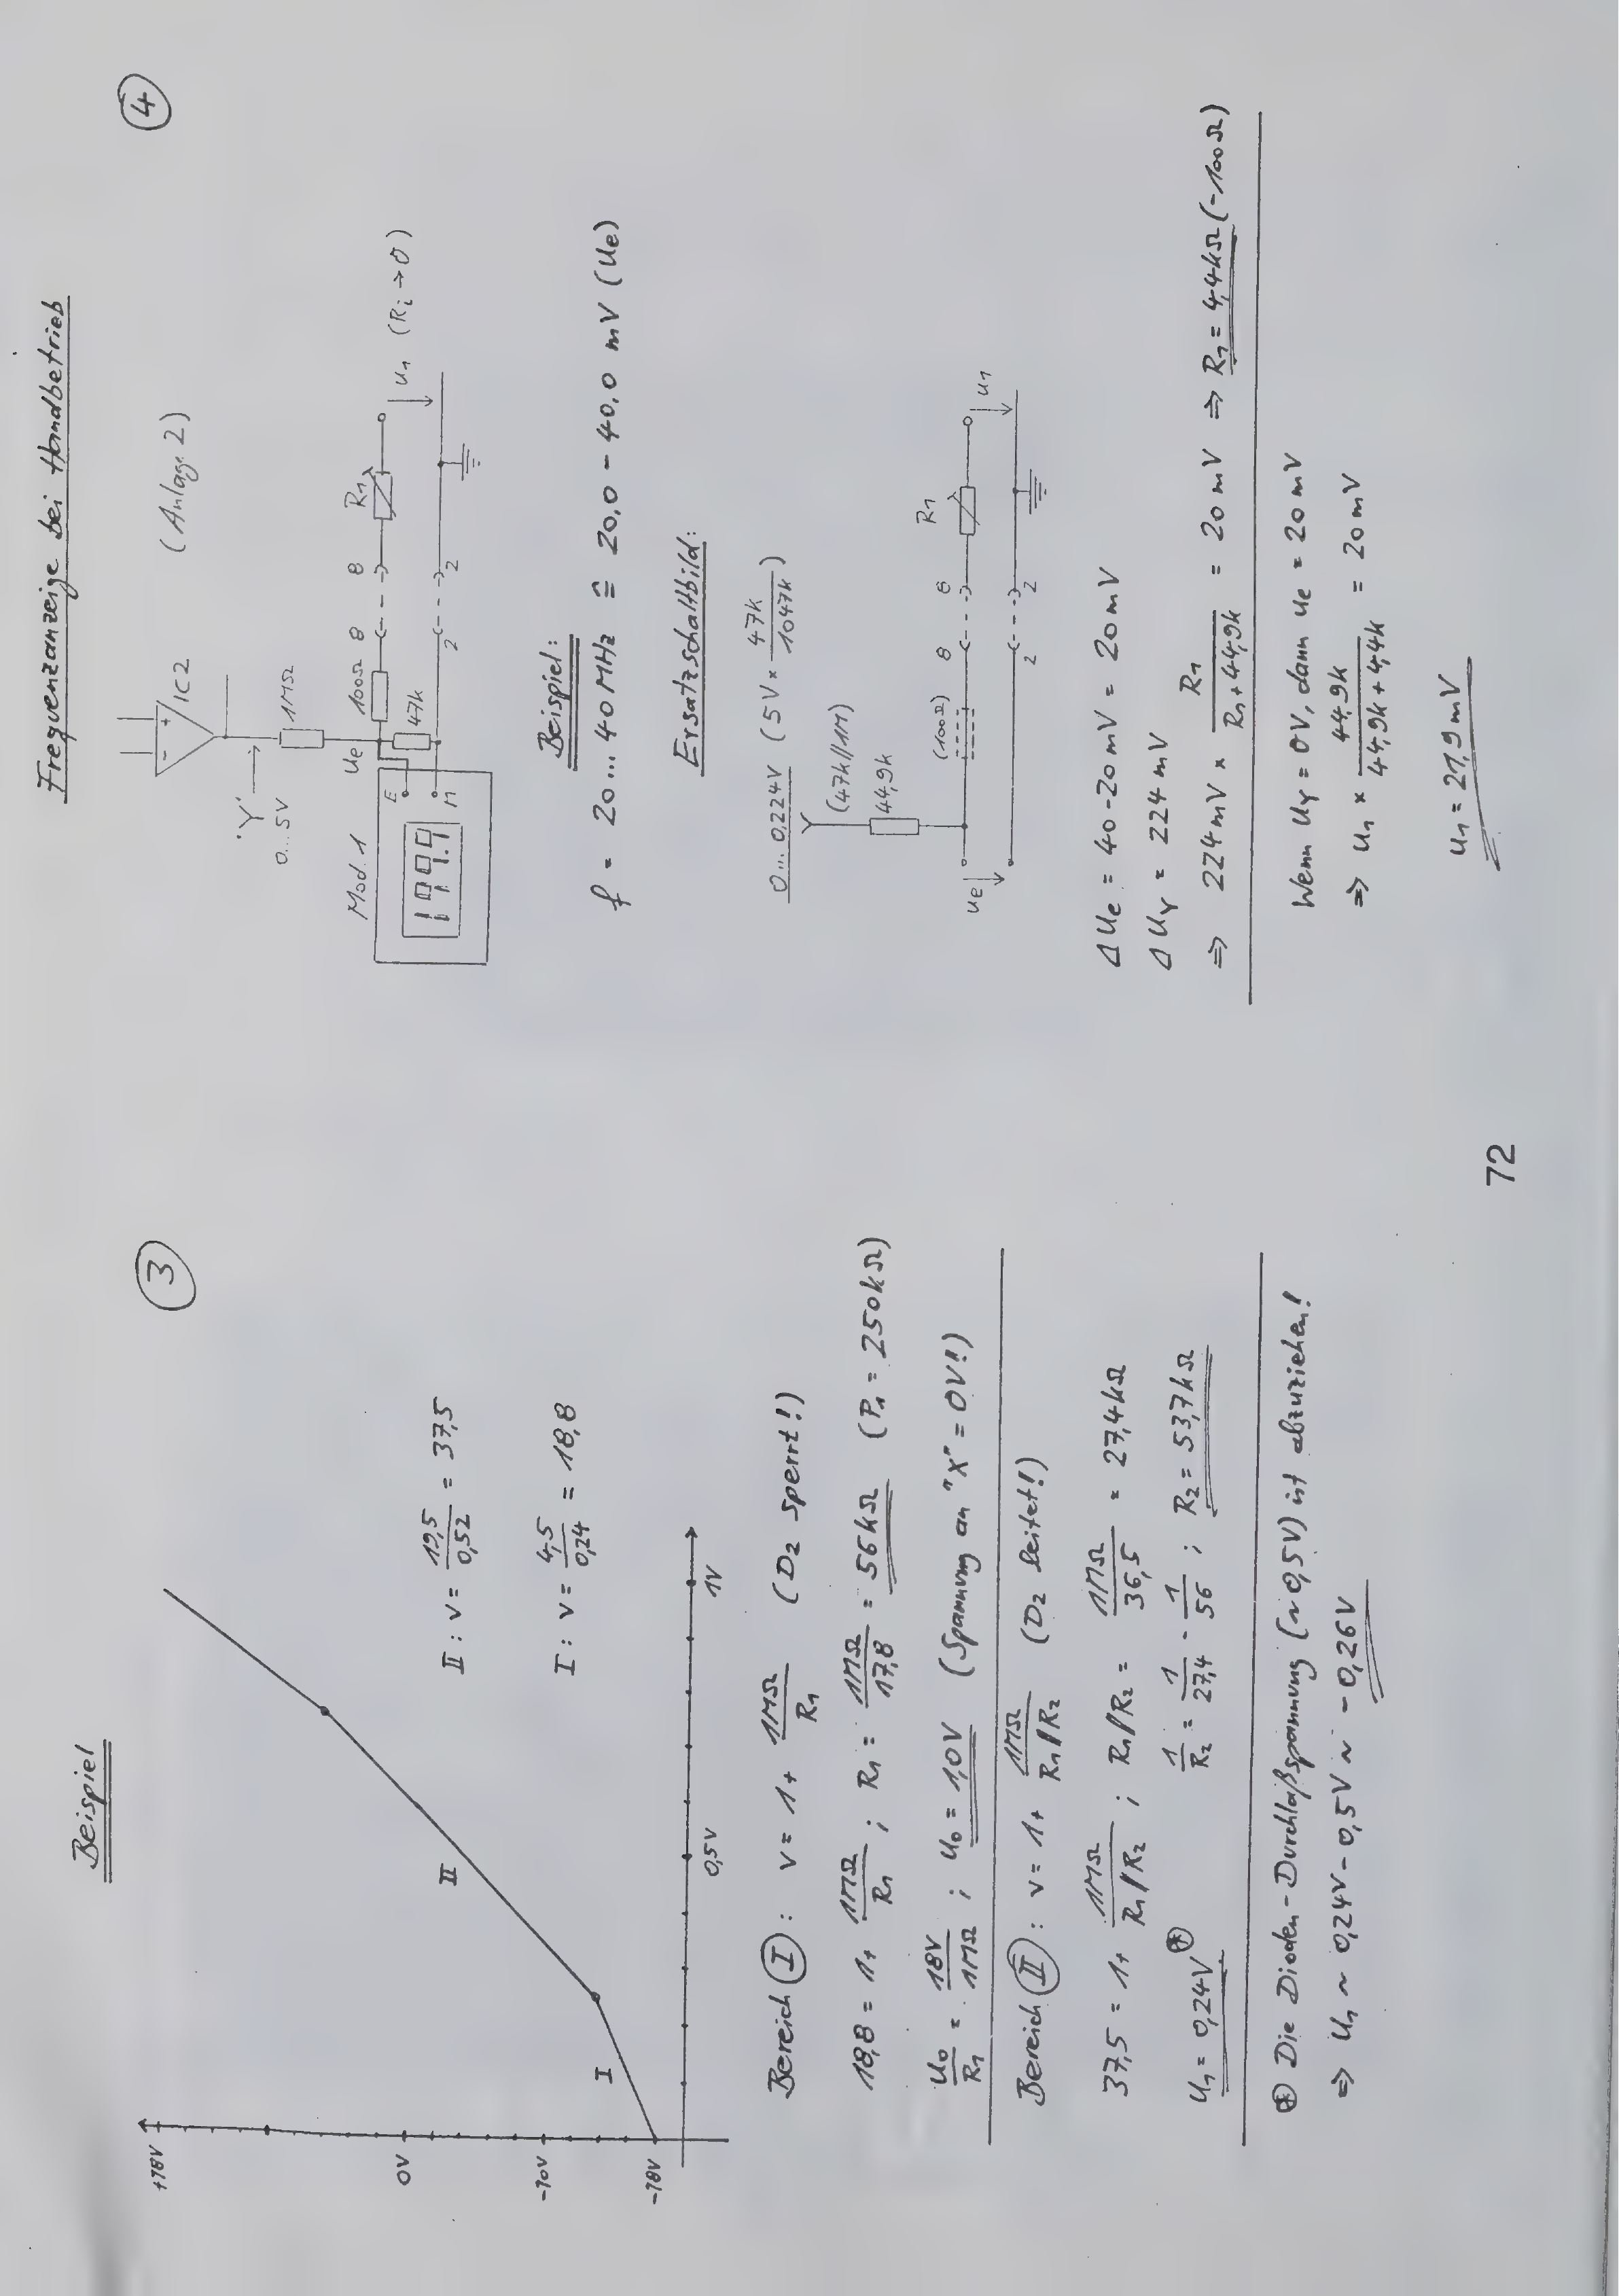 Beispiel
③
+18V
0V
-10V
-18V
0,5V
1V
I
II
II : v = 19,5/0,52 = 37,5
I : v = 4,5/0,24 = 18,8
Bereich Ⓘ : v = 1 + 1MΩ/R1 (D2 sperrt!)
18,8 = 1 + 1MΩ/R1 ; R1 = 1MΩ/17,8 = 56kΩ (P1 = 250kΩ)
U0/R1 = 18V/1MΩ ; U0 = 1,0V (Spannung an "X" = 0V!)
Bereich II : v = 1 + 1MΩ/R1//R2 (D2 leitet!)
37,5 = 1 + 1MΩ/R1//R2 ; R1//R2 = 1MΩ/36,5 = 27,4kΩ
U1 = 0,24V ⊛ 1/R2 = 1/27,4 - 1/56 ; R2 = 53,7kΩ
⊛ Die Dioden-Durchlaßspannung (~0,5V) ist abzuziehen!
⇒ U1 ~ 0,24V - 0,5V ~ -0,26V
72
Frequenzanzeige bei Handbetrieb
④
(Anlage 2)
- +
IC2
'Y'
0...5V
1MΩ
Mod. 1
199.9
E
M
Ue
100Ω
47k
8 8
2 2
R1
U1 (Ri → 0)
Beispiel:
f = 20...40MHz ≙ 20,0 - 40,0 mV (Ue)
Ersatzschaltbild:
0...0,224V (5V × 47k/1047k)
(47k//1M)
44,9k
(100Ω)
8 8
R1
Ue
2 2
U1
ΔUe = 40-20mV = 20mV
ΔUY = 224mV
⇒ 224mV × R1/R1+44,9k = 20mV ⇒ R1 = 4,4kΩ (-100Ω)
Wenn UY = 0V, dann Ue = 20mV
⇒ U1 × 44,9k/44,9k+4,4k = 20mV
U1 = 21,9mV